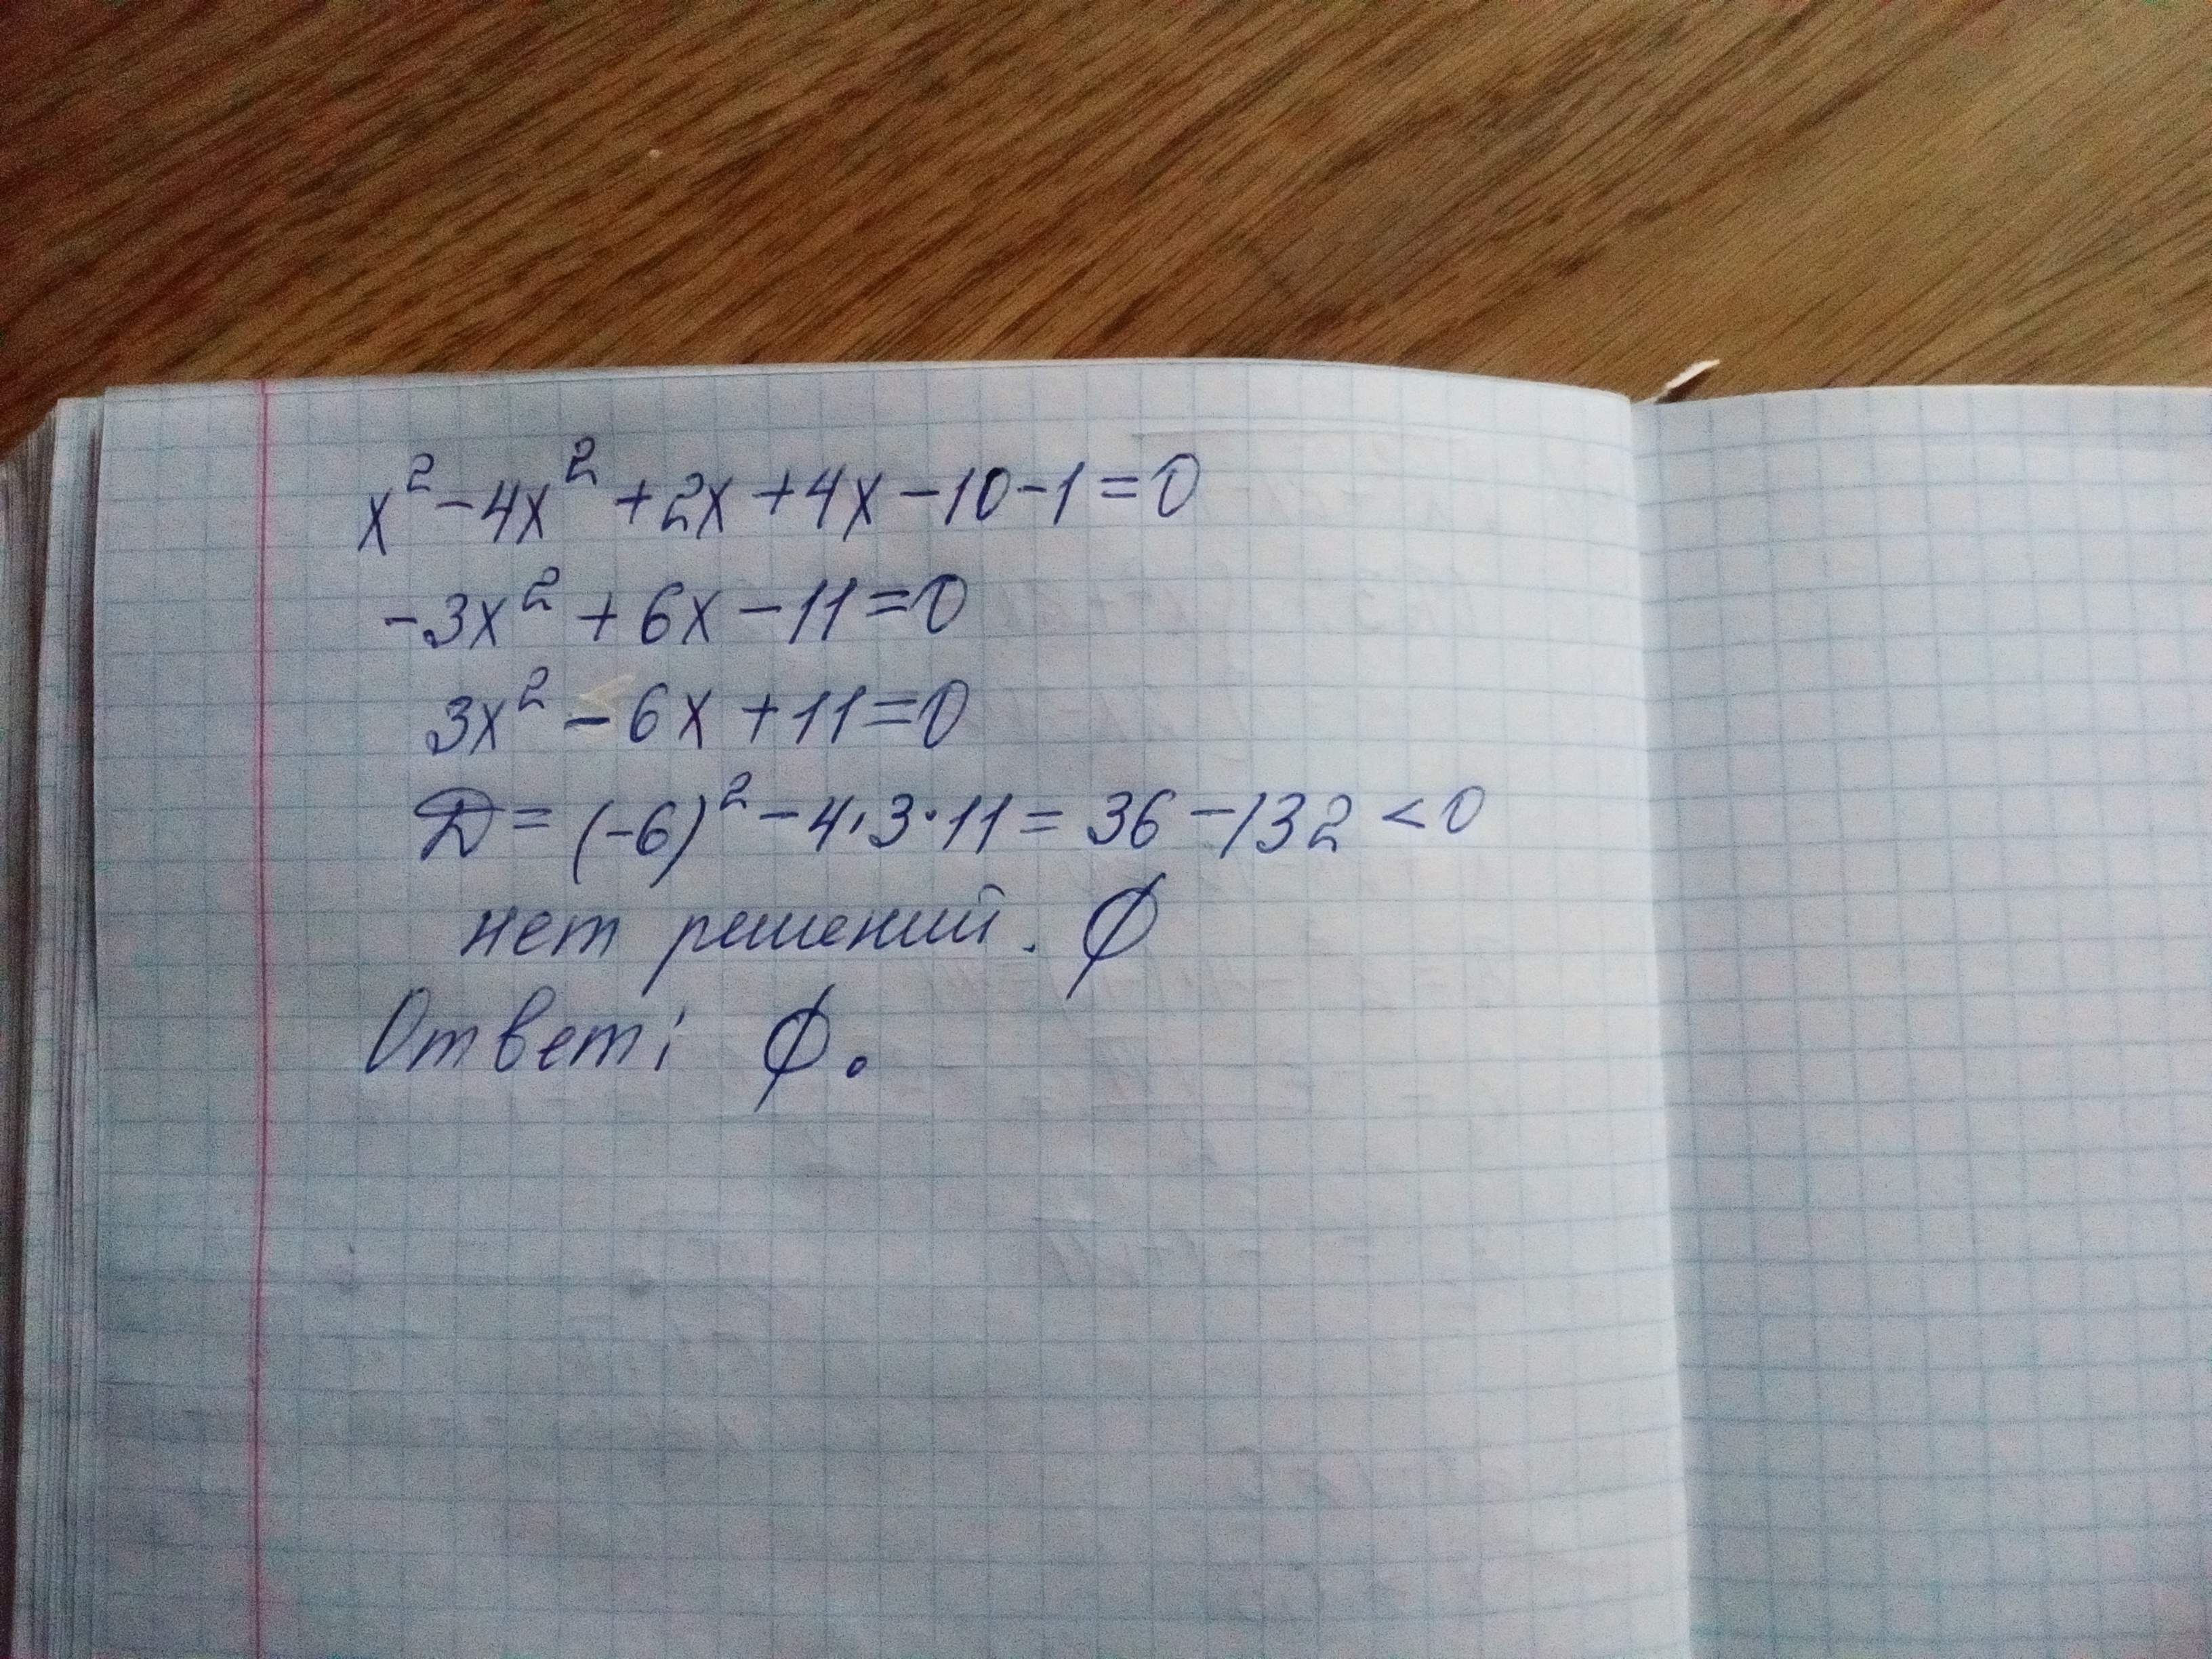 x² - 4x² + 2x + 4x - 10 - 1 = 0
-3x² + 6x - 11 = 0
3x² - 6x + 11 = 0
D = (-6)² - 4·3·11 = 36 - 132 < 0
нет решений. ∅
Ответ: ∅.